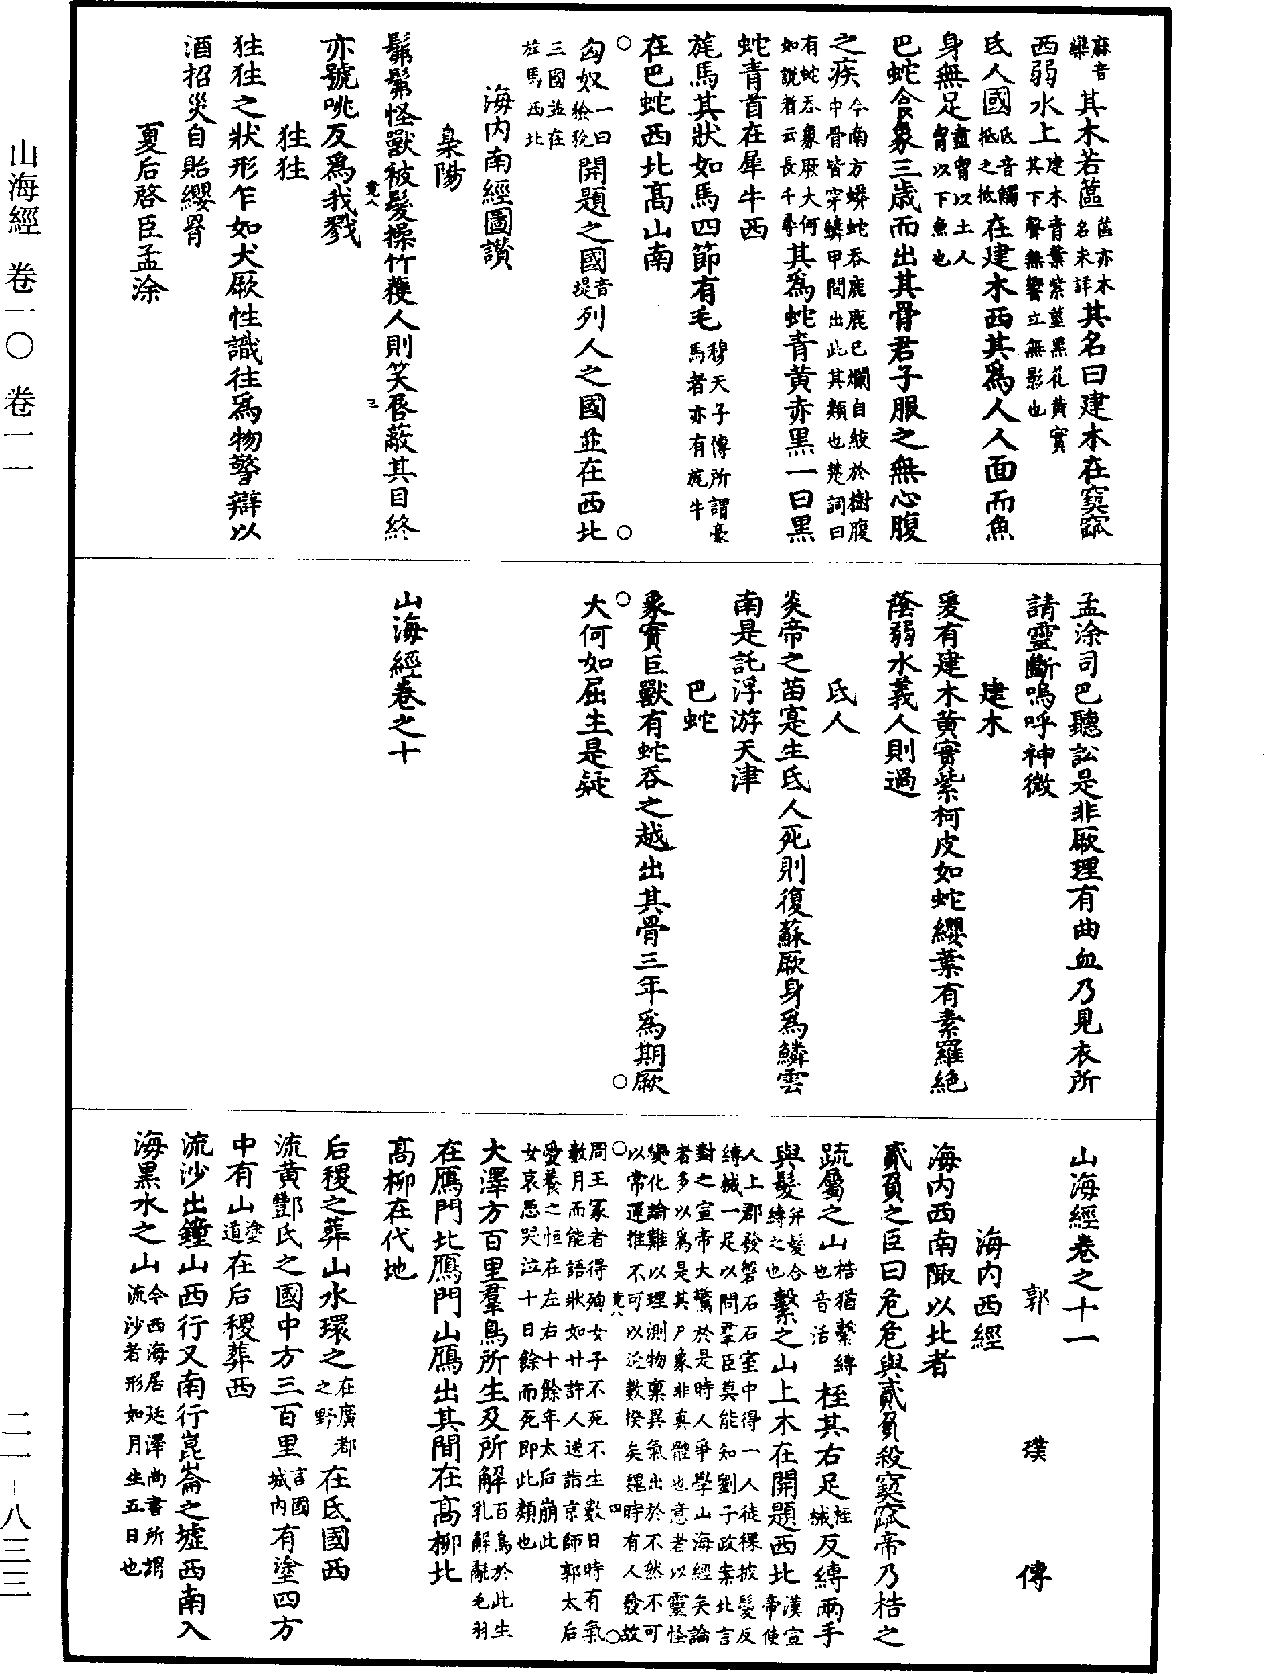 山海經　卷一〇　卷一一
二一－八三三
欒音麻其木若蓲蓲亦木名未詳其名曰建木在窫窳
西弱水上建木青葉紫莖黑花黃實其下聲無響立無影也
氐人國氐音觸抵之抵在建木西其爲人人面而魚
身無足盡胷以上人胷以下魚也
巴蛇食象三歲而出其骨君子服之無心腹
之疾今南方蟒蛇吞鹿鹿已爛自絞於樹腹中骨皆穿鱗甲間出此其類也楚詞曰
有蛇吞象厥大何如說者云長千尋其爲蛇青黃赤黑一曰黑
蛇青首在犀牛西
旄馬其狀如馬四節有毛穆天子傳所謂豪馬者亦有旄牛
在巴蛇西北高山南
匈奴一曰獫狁開題之國音提列人之國並在西北
三國並在旄馬西北
海内南經圖讚
梟陽
髴髴怪獸被髮操竹獲人則笑脣蔽其目終
亦號咷反爲我戮
狌狌
狌狌之狀形乍如犬厥性識往爲物警辯以
酒招災自貽纓罥
夏后啓臣孟涂
孟涂司巴聽訟是非厥理有曲血乃見衣所
請靈斷嗚呼神微
建木
爰有建木黃實紫柯皮如蛇纓葉有素羅絶
蔭弱水義人則過
氐人
炎帝之苗寔生氐人死則復蘇厥身爲鱗雲
南是託浮游天津
巴蛇
象實巨獸有蛇吞之越出其骨三年爲期厥
大何如屈生是疑
山海經卷之十
山海經卷之十一
郭　璞　傳
海内西經
海内西南陬以北者
貳負之臣曰危危與貳負殺窫窳帝乃梏之
疏屬之山梏猶繫縛也音活桎其右足桎械反縛兩手
與髮并髮合縛之也繫之山上木在開題西北漢宣帝使
人上郡發磐石石室中得一人徒祼披髮反縛械一足以問羣臣莫能知劉子政案此言
對之宣帝大驚於是時人爭學山海經矣論者多以爲是其尸象非真體也意者以靈怪
變化論難以理測物稟異氣出於不然不可以常運推不可以近數揆矣魏時有人發故
周王冢者得殉女子不死不生數日時有氣數月而能語狀如廿許人送詣京師郭太后
愛養之恒在左右十餘年太后崩此女哀思哭泣十日餘而死即此類也
大澤方百里羣鳥所生及所解百鳥於此生乳解毻毛羽
在鴈門北鴈門山鴈出其間在高柳北
高柳在代地
后稷之葬山水環之在廣都之野在氐國西
流黃酆氏之國中方三百里言國城内有塗四方
中有山塗道在后稷葬西
流沙出鐘山西行又南行崑崙之墟西南入
海黑水之山今西海居延澤尚書所謂流沙者形如月生五日也